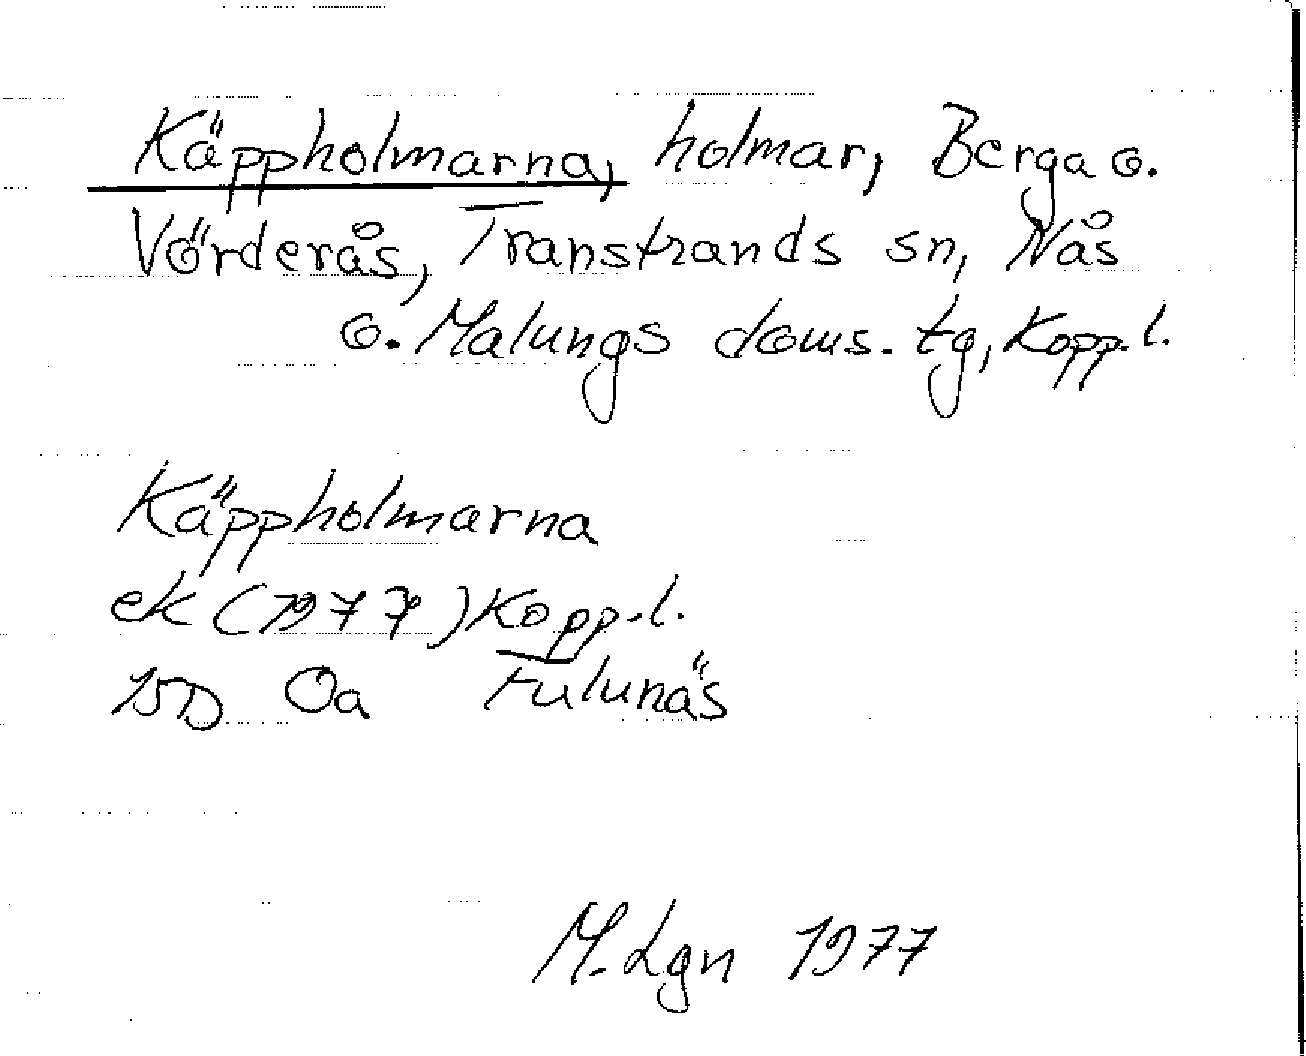 Käppholmarna, holmar, Berga o.
Vörderås, Transtrands sn, Nås
o. Malungs doms. tg, Kopp. l.
Käppholmarna
ek (1977) Kopp. l.
15D Oa Fulunäs
M. Lgn 1977